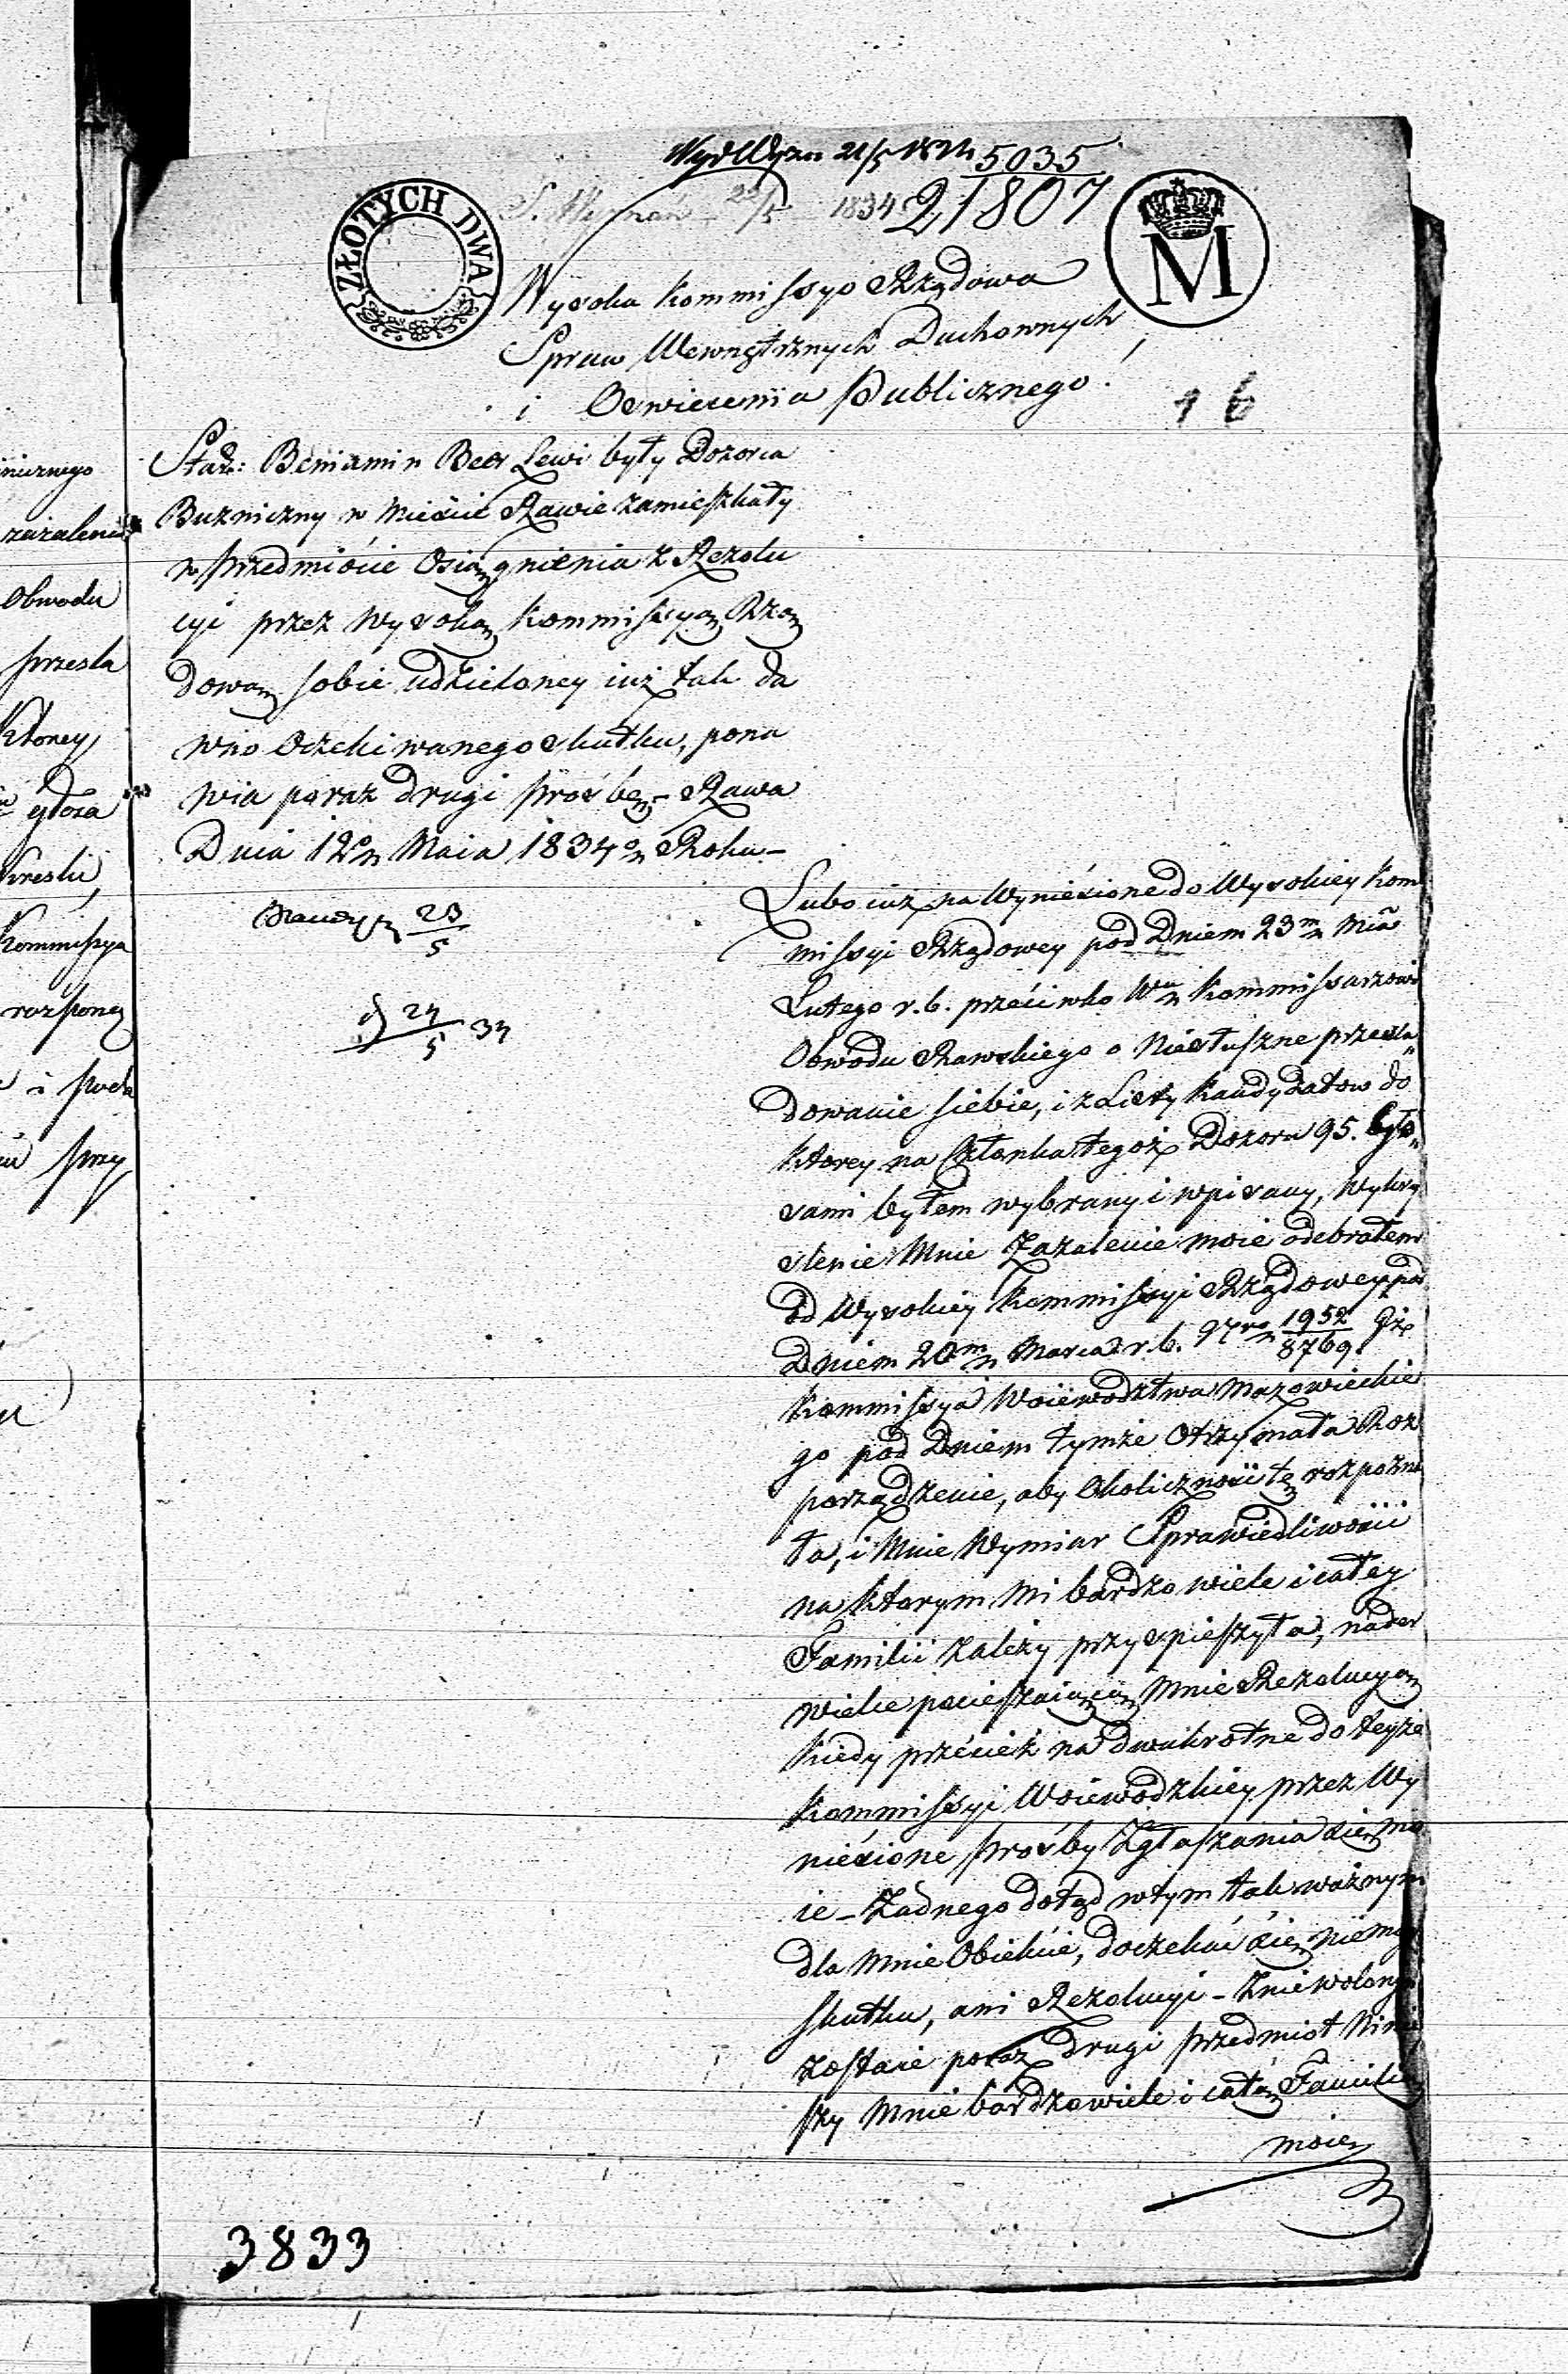 21/5 5035
22/5 1834 21807
ZŁOTYCH DWA
M
Wysoka Kommissyo Rządowa
Spraw Wewnętrznych Duchownych
i Oswiecenia Publicznego!
16
Star: Beniamin Beer Lewi były Dozorca
Buzniczny w Mieście Rawie zamieszkały
w przedmiocie Osiągnienia z Rezolu
cyi przez Wysoką Kommissyą Rzą
dową sobie udzieloney iuż tak da
wno Oczekiwanego skutku, pona
wia poraz drugi prośbę - Rawa
Dnia 12o Maia 1834o Roku -
23/5
24/5 34
Lubo iuż na Wyniesione do Wysokiey Kom
missyi Rządowey pod Dniem 23m Mca
Lutego r. b. przeciwko Wu Kommissarzowi
Obwodu Rawskiego o Niesłuszne przesla
dowanie siebie, i z Listy Kandydatow do
ktorey na Członka tegoż Dozoru 95. Gło
sami byłem wybrany i wpisany, Wykry
slenie Mnie Zażalenie moie odebrałem
od Wysokiey Kommissyi Rządowey pod
Dniem 20m Marca r. b. Nro 1952/8769. Iż
Kommissya Woiewodztwa Mazowieckie
go pod Dniem tymże Otrzymała Roz
porządzenie, aby Okoliczność tę rozpozna
ła, i Mnie Wymiar Sprawiedliwości
na ktorym Mi bardzo wiele i całey
Familii zależy przyspieszyła, nader
wielce pocieszaiącą Mnie Rezolucyą
Kiedy przecież na dwukrotne do teyże
Kommissyi Woiewodzkiey przez Wy
niesione prośby Zgłaszania się mo
ie - Żadnego dotąd w tym tak ważnym
dla Mnie Obiekcie, doczekać się niemogę
skutku, ani Rezolucyi - Zniewolony
zostaie poraz drugi przedmiot Niniey
szy Mnie bardzo wiele i całą Familią
moię
3833
inicznego
zażalenie
Obwodu
przesla
Ktorey
głosa
kreslić
Kommissya
rozpozn
i
przy